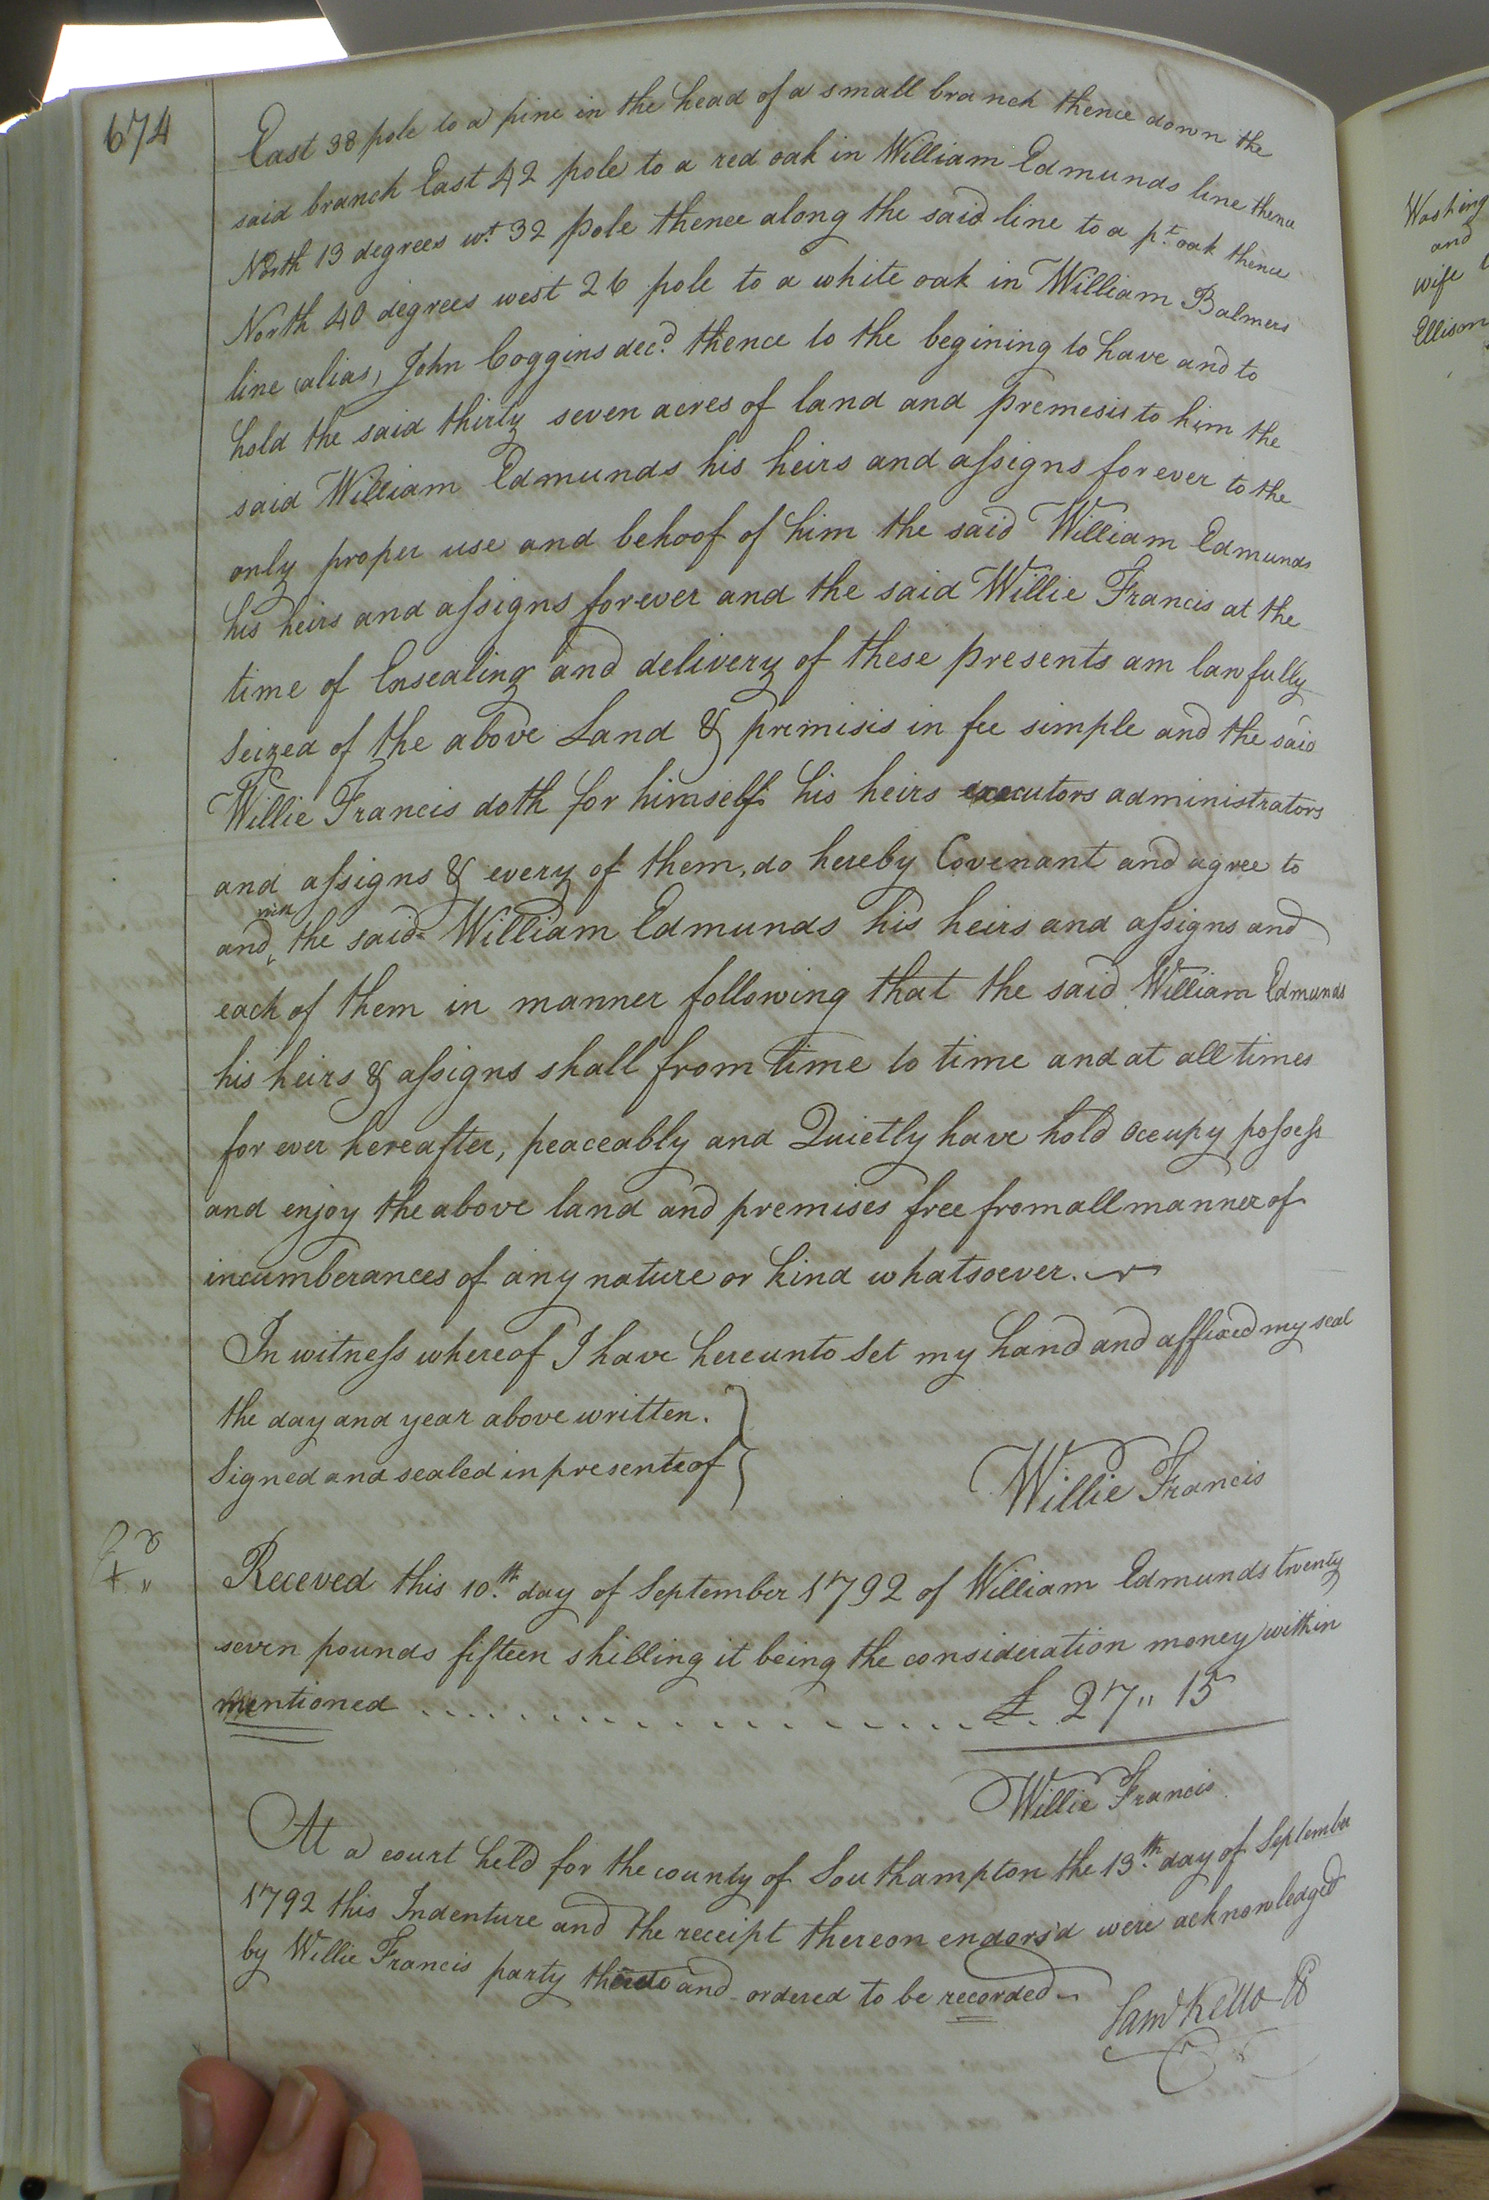 674
East 38 pole to a pine in the head of a small branch thence down the
said branch East 42 pole to a red oak in William Edmunds line thence
North 13 degrees wt. 32 pole thence along the said line to a pt. oak thence
North 40 degrees west 26 pole to a white oak in William Balmers
line (alias) John Coggins decd. thence to the begining to have and to
hold the said thirty seven acres of land and premesis to him the
said William Edmunds his heirs and assigns for ever to the
only proper use and behoof of him the said William Edmunds
his heirs and assigns forever and the said Willie Francis at the
time of Ensealing and delivery of these presents am lawfully
Seized of the above Land & premisis in fee simple and the said
Willie Francis doth for himself his heirs executors administrators
and assigns & every of them, do hereby Covenant and agree to
and with the said William Edmunds his heirs and assigns and
each of them in manner following that the said William Edmunds
his heirs & assigns shall from time to time and at all times
for ever hereafter, peaceably and Quietly have hold occupy possess
and enjoy the above land and premises free from all manner of
incumberances of any nature or kind whatsoever.
In witness whereof I have hereunto set my hand and affixed my seal
the day and year above written.
Signed and sealed in presents of
Willie Francis
Receved this 10th. day of September 1792 of William Edmunds twenty
seven pounds fifteen shilling it being the consideration money within
mentioned . . . . . . . . . . . . . . . . . . £ 27 " 15
Willie Francis
At a court held for the county of Southampton the 13th. day of September
1792 this Indenture and the receipt thereon endors'd were acknowledged
by Willie Francis party thereto and ordered to be recorded
Saml Kello
Washing
and
wife
Ellison